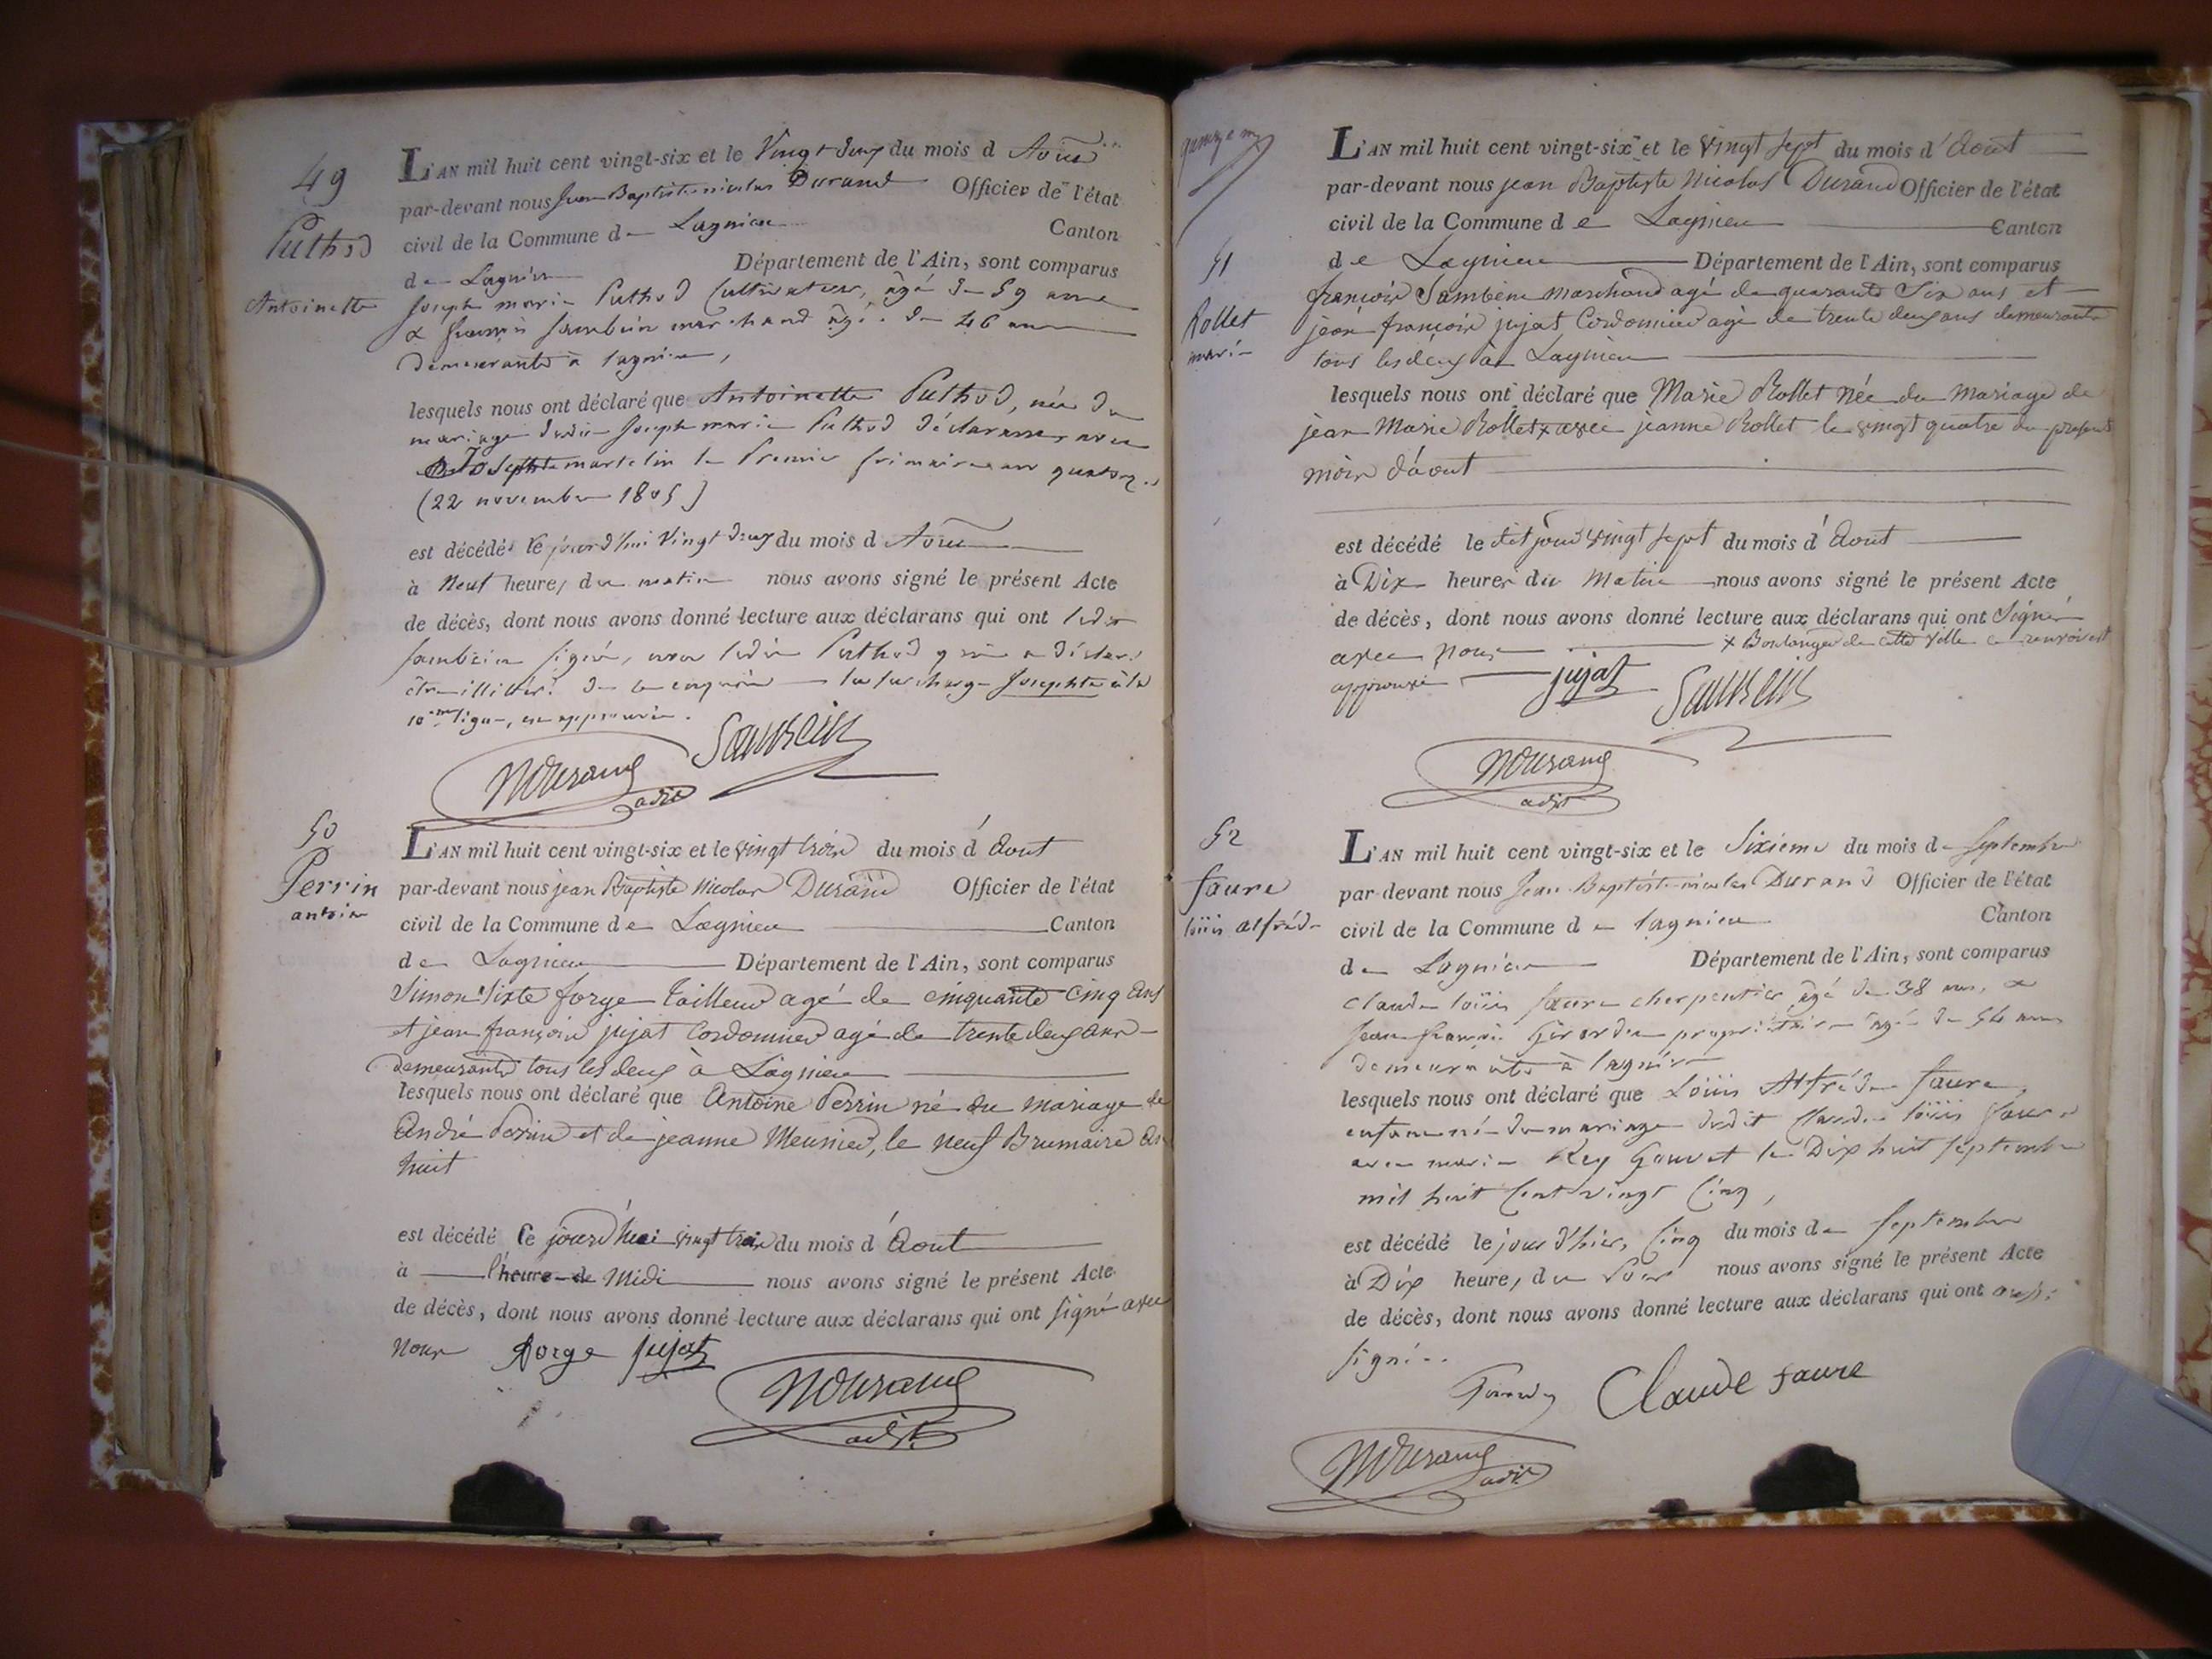 49
Puthod
Antoinette
L'AN mil huit cent vingt-six et le Vingt deux du mois d Aout
par-devant nous Jean Baptiste nicolas Durand Officier de l'état
civil de la Commune de Lagnieu Canton
de Lagnieu Département de l'Ain, sont comparus
Joseph marie Puthod Cultivateur, âgé de 59 ans
& françois sambein marchand âgé de 46 ans
Demeurants à lagnieu,
lesquels nous ont déclaré que Antoinette Puthod, née du
mariage dudit Joseph marie Puthod déclarant, avec
Josephte martelin le Premier frimaire an quatorze
(22 novembre 1805)
est décédée le jourd'hui Vingt deux du mois d Aout
à Neuf heures du matin nous avons signé le présent Acte
de décès, dont nous avons donné lecture aux déclarans qui ont ledit
sambein signé, non ledit Puthod qui a déclaré
être illitéré de ce enquis la surcharge Josephte à la
10eme ligne, est approuvée.
NDurand
adjt
Sambein
50
Perrin
antoine
L'AN mil huit cent vingt-six et le vingt trois du mois d'Aout
par-devant nous jean Baptiste Nicolas Durand Officier de l'état
civil de la Commune de Lagnieu Canton
de Lagnieu Département de l'Ain, sont comparus
Simon Sixte forge tailleur agé de cinquante cinq ans
et jean françois jujat Cordonnier agé de trente deux ans
demeurants tous les deux à Lagnieu
lesquels nous ont déclaré que Antoine Perrin né du mariage de
André Perrin et de jeanne Meunier, le neuf Brumaire an
huit
est décédé le jourd'huei vingt trois du mois d'Aout
à l'heure de Midi nous avons signé le présent Acte
de décès, dont nous avons donné lecture aux déclarans qui ont signé avec
nous forge jujat
NDurand
adjt
51
Rollet
marie
L'AN mil huit cent vingt-six et le vingt sept du mois d'Aout
par-devant nous jean Baptiste Nicolas Durand Officier de l'état
civil de la Commune de Lagnieu Canton
de Lagnieu Département de l'Ain, sont comparus
françois Sambein marchand agé de quarante six ans et
jean françois jujat Cordonnier agé de trente deux ans demeurants
tous les deux à Lagnieu
lesquels nous ont déclaré que Marie Rollet née du mariage de
jean Marie Rollet x avec jeanne Rollet le vingt quatre du present
mois d'aout
est décédé le dit jour vingt sept du mois d'Aout
à Dix heures du Matin nous avons signé le présent Acte
de décès, dont nous avons donné lecture aux déclarans qui ont Signé
avec nous x Boulanger de cette ville ce renvoi est
approuvé jujat Sambein
NDurand
adjt
52
faure
loüis alfréde
L'AN mil huit cent vingt-six et le Sixieme du mois de Septembre
par-devant nous Jean Baptiste nicolas Durand Officier de l'état
civil de la Commune de lagnieu Canton
de Lagnieu Département de l'Ain, sont comparus
Claude loüis faure cherpentier âgé de 38 ans, &
Jean françois Girardin propriétaire âgé de 54 ans
demeurants à lagnieu
lesquels nous ont déclaré que Loüis Alfréde faure,
enfant né du mariage dudit Claude loüis faure
avec marie Rey Gouvet le Dix huit septembre
mil huit Cent vingt Cinq,
est décédé le jour d'hier, Cinq du mois de Septembre
à Dix heures du Soir nous avons signé le présent Acte
de décès, dont nous avons donné lecture aux déclarans qui ont aussi
signé..
Claude faure
NDurand
adjt